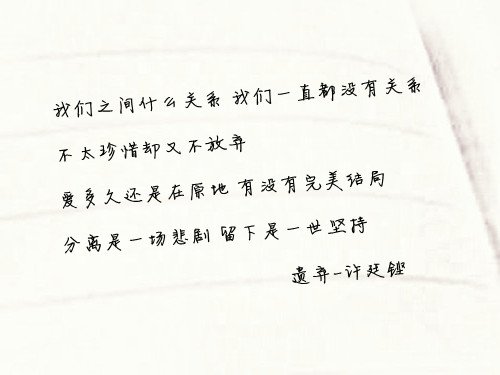 我们之间什么关系 我们一直都没有关系
不太珍惜却又不放弃
爱多久还是在原地 有没有完美结局
分离是一场悲剧 留下是一世坚持
遗弃-许廷铿